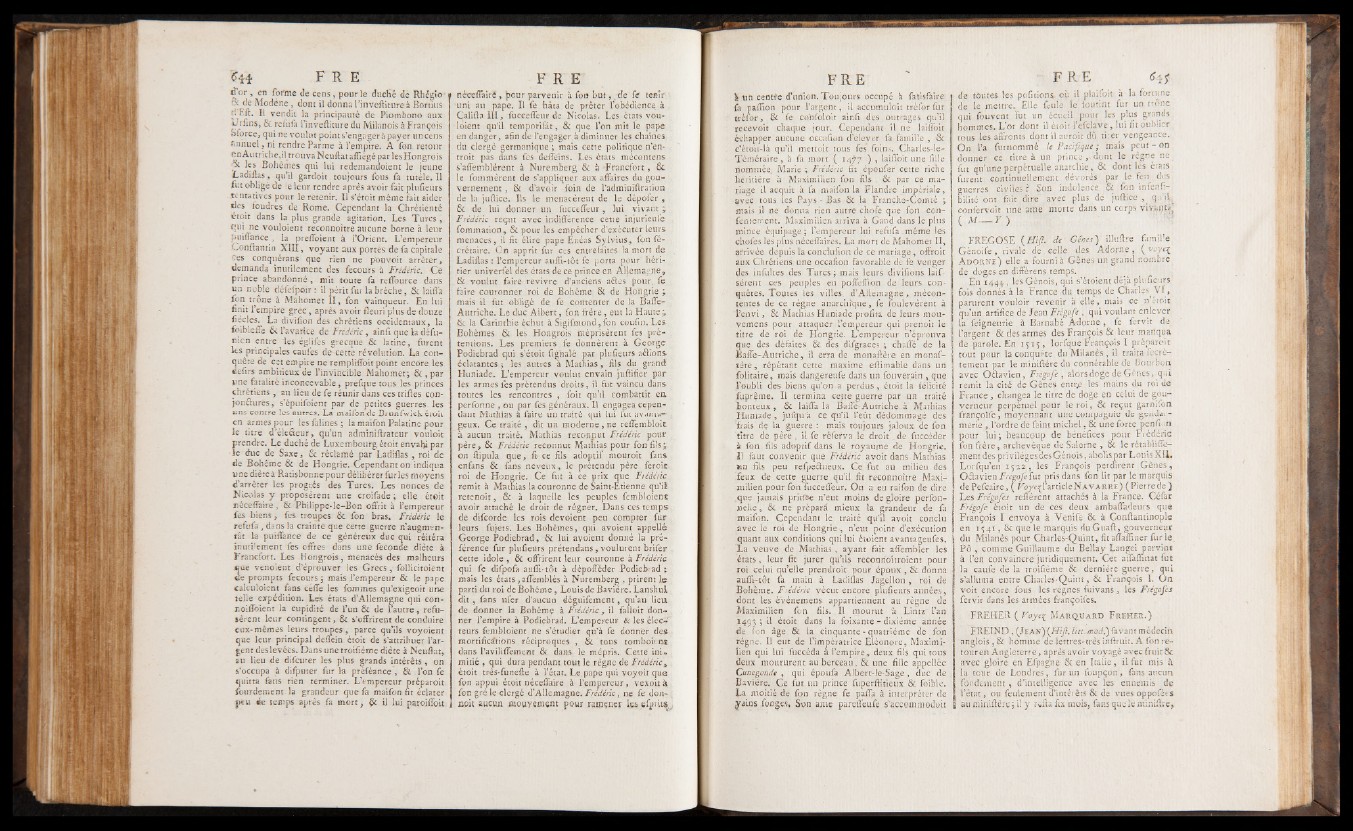 644 F R E
d'or, en forme de cens, pour le duché de Rhégio
& de Modène, dont il donna l'investiture à Borsius
d'Est. Il vendit la principauté de Piombono aux
Ursins, & refusa l'investiture du Milanois à François
Sforce, qui ne voulut point s'engager à payer un cens
annuel, ni rendre Parme à l'empire. A son retour
en Autriche, il trouva Neustat assiégé par les Hongrois
& les Bohêmes qui lui redemandoient le jeune
Ladislas, qu'il gardoit toujours sous sa tutèle. Il
fut obligé de le leur rendre après avoir fait plusieurs
tentatives pour le retenir. Il s'étoit même fait aider
des foudres de Rome. Cependant la Chrétienté
étoit dans la plus grande agitation. Les Turcs,
qui ne vouloient reconnoître aucune borne à leur
puissance, la pressoient à l'Orient. L'empereur
Constantin XIII, voyant aux portes de sa capitale
ces conquérans que rien ne pouvoit arrêter,
demanda inutilement des secours à Frédéric. Ce
prince abandonné, mit toute sa ressource dans
un noble désespoir : il périt sur la brèche, & laissa
son trône à Mahomet II, son vainqueur. En lui
finit l'empire grec, après avoir fleuri plus de douze
siècles. La division des chrétiens occidentaux, la
foiblesse & l'avarice de Frédéric, ainsi que la désunion
entre les églises grecque & latine, furent
les principales causes de cette révolution. La conquête
de cet empire ne remplissoit point encore les
desirs ambitieux de l'invincible Mahomet; &, par
une fatalité inconcevable, presque tous les princes
chrétiens, au lieu de se réunir dans ces tristes conjonctures,
s'épuisoient par de petites guerres les
uns contre les autres. La maison de Brunswick étoit
en armes pour les salines ; la maison Palatine pour
le titre d'électeur, qu'un administrateur vouloit
prendre. Le duché de Luxembourg étoit envahi par
le duc de Saxe, & réclamé par Ladislas, roi de
de Bohême & de Hongrie. Cependant on indiqua
une diète à Ratisbonne pour délibérer sur les moyens
d'arrêter les progrès des Turcs. Les nonces de
Nicolas y proposèrent une croisade ; elle étoit
nécessaire, & Philippe-le-Bon offrit à l'empereur
ses biens, ses troupes & son bras. Frédéric le
refusa, dans la crainte que cette guerre n'augmentât
la puissance de ce généreux duc qui réitéra
inutilement ses offres dans une seconde diète à
Francfort. Les Hongrois, menacés des malheurs
que venoient d'éprouver les Grecs, sollicitoient
de prompts secours ; mais l'empereur & le pape
calculoient sans cesse les sommes qu'exigeoit une
telle expédition. Les états d'Allemagne qui connoissoient
la cupidité de l'un & de l'autre, refusèrent
leur contingent, & s'offrirent de conduire
eux-mêmes leurs troupes, parce qu'ils voyoient
que leur principal dessein étoit de s'attribuer l'argent
des levées. Dans une troisième diète à Neustat,
au lieu de discuter les plus grands intérêts, on
s'occupa à disputer sur la préséance, & l'on se
quitta sans rien terminer. L'empereur préparoit
sourdement la grandeur que sa maison fit éclater
peu de temps après sa mort, & il lui paroissoit
F R E
nécessaire, pour parvenir à son but, de se tenir
uni au pape. Il se hâta de prêter l'obédience à
Calista III, successeur de Nicolas. Les états vouloient
qu'il temporisât, & que l'on mit le pape
en danger, afin de l'engager à diminuer les chaînes
du clergé germanique ; mais cette politique n'entroit
pas dans ses desseins. Les états mécontens
s'assemblèrent à Nuremberg & à Francfort, &
le sommèrent de s'appliquer aux affaires du gouvernement,
& d'avoir soin de l'administration
de la justice. Ils le menacèrent de le déposer,
& de lui donner un successeur, lui vivant ;
Frédéric reçut avec indifférence cette injurieuse
sommation, & pour les empêcher d'exécuter leurs
menaces, il fit élire pape Enéas Sylvius, son secrétaire.
On apprit sur ces entrefaites la mort de
Ladislas : l'empereur aussi-tôt se porta pour héritier
universel des états de ce prince en Allemagne,
& voulut faire revivre d'anciens actes pour se
faire couronner roi de Bohême & de Hongrie ;
mais il fut obligé de se contenter de la Basse-
Autriche. Le duc Albert, son frère, eut la Haute ;
& la Carinthie échut à Sigismond, son cousin. Les
Bohêmes & les Hongrois méprisèrent ses prétentions.
Les premiers se donnèrent à George
Podiebrad qui s'étoit signalé par plusieurs actions
éclatantes ; les autres à Mathias, fils du grand
Huniade. L'empereur voulut envain justifier par
les armes ses prétendus droits, il fut vaincu dans
toutes les rencontres, soit qu'il combattît en
personne, ou par ses généraux. Il engagea cependant
Mathias à faire un traité qui lui fut avantageux.
Ce traité, dit un moderne, ne ressembloit
à aucun traité. Mathias reconnut Frédéric pour
père, & Frédéric reconnut Mathias pour son fils ;
on stipula que, si ce fils adoptif mouroit sans
enfans & sans neveux, le prétendu père seroit
roi de Hongrie. Ce fut à ce prix que Frédéric
remit à Mathias la couronne de Saint-Etienne qu'il
retenoit, & à laquelle les peuples sembloient
avoir attaché le droit de régner. Dans ces temps
de discorde les rois devoient peu compter sur
leurs sujets. Les Bohêmes, qui avoient appellé
George Podiebrad, & lui avoient donné la préférence
sur plusieurs prétendans, voulurent briser
cette idole, & offrirent leur couronne à Frédéric
qui se disposa aussi-tôt à déposséder Podiebrad ;
mais les états, assemblés à Nuremberg, prirent le
parti du roi de Bohême, Louis de Bavière. Lanshut
dit, sans user d'aucun déguisement, qu'au lieu
de donner la Bohême à Frédéric, il falloit donner
l'empire à Podiebrad. L'empereur & les électeurs
sembloient ne s'étudier qu'à se donner des
mortifications réciproques, & tous tomboient
dans l'avilissement & dans le mépris. Cette inimitié,
qui dura pendant tout le règne de Frédéric,
étoit très-funeste à l'état. Le pape qui voyoit que
son appui étoit nécessaire à l'empereur, vexoit à
son gré le clergé d'Allemagne. Frédéric, ne se donnoit
aucun mouvement pour ramener les esprits
F R E
à un centre d'union. Toujours occupé à satisfaire
sa passion pour l'argent, il accumuloit trésor sur
trésor, & se consoloit ainsi des outrages qu'il
recevoit chaque jour. Cependant il ne laissoit
échapper aucune occasion d'élever sa famille, &
c'étoit-là qu'il mettoit tous ses soins. Charles-le-
Téméraire, à sa mort ( 1477 ), laissoit une fille
nommée Marie ; Frédéric fit épouser cette riche
héritière à Maximilien son fils & par ce mariage
il acquit à sa maison la Flandre impériale,
avec tous les Pays-Bas & la Franche-Comté ;
mais il ne donna rien autre chose que son consentement.
Maximilien arriva à Gand dans le plus
mince équipage ; l'empereur lui refusa même les
choses les plus nécessaires. La mort de Mahomet II,
arrivée depuis la conclusion de ce mariage, offroit
aux Chrétiens une occasion favorable de se venger
des insultes des Turcs ; mais leurs divisions laissèrent
ces peuples en possession de leurs conquêtes.
Toutes les villes d'Allemagne, mécontentes
de ce règne anarchique, se soulevèrent à
l'envi, & Mathias Huniade profita de leurs mouvemens
pour attaquer l'empereur qui prenoit le
titre de roi de Hongrie. L'empereur n'éprouva
que des défaites & des disgraces ; chassé de la
Basse-Autriche, il erra de monastère en monastère,
répétant cette maxime estimable dans un
solitaire, mais dangereuse dans un souverain, que
l'oubli des biens qu'on a perdus, étoit la félicité
suprême. Il termina cette guerre par un traité
honteux, & laissa la Basse-Autriche à Mathias
Huniade, jusqu'à ce qu'il l'eût dédommagé des
frais de la guerre : mais toujours jaloux de son
titre de père, il se réserva le droit de succéder
à son fils adoptif dans le royaume de Hongrie.
Il faut convenir que Frédéric avoit dans Mathias
un fils peu respectueux. Ce fut au milieu des
feux de cette guerre qu'il fit reconnoître Maximilien
pour son successeur. On a eu raison de dire
que jamais prince n'eut moins de gloire personnelle,
& ne prépara mieux la grandeur de sa
maison. Cependant le traité qu'il avoit conclu
avec le roi de Hongrie, n'eut point d'exécution
quant aux conditions qui lui étoient avantageuses.
La veuve de Mathias, ayant fait assembler les
états, leur fit jurer qu'ils reconnoîtroient pour
roi celui qu'elle prendroit pour époux, & donna
aussi-tôt sa main à Ladislas Jagellon, roi de
Bohême. Frédéric vécut encore plusieurs années,
dont les événemens appartiennent au règne de
Maximilien son fils. Il mourut à Lintz l'an
1493 ; il étoit dans la soixante-dixième année
de son âge & la cinquante-quatrième de son
règne. Il eut de l'impératrice Eléonore, Maximilien
qui lui succéda à l'empire, deux fils qui tous
deux moururent au berceau, & une fille appellée
Cunegonde, qui épousa Albert-le-Sage, duc de
Bavière. Ce fut un prince superstitieux & foible.
La moitié de son règne se passa à interpréter de
vains songes. Son ame paresseuse s'accommodoit
F R E 645
de toutes les positions où il plaisoit à la fortune
de le mettre. Elle seule le soutint sur un trône
qui souvent fut un écueil pour les plus grands
hommes. L'or dont il étoit l'esclave, lui fit oublier
tous les affronts dont il auroit dû tirer vengeance.
On l'a surnommé le Pacifique ; mais peut-on
donner ce titre à un prince, dont le règne ne
fut qu'une perpétuelle anarchie, & dont les états
furent continuellement dévorés par le feu des
guerres civiles ? Son indolence & son insensibilité
ont fait dire avec plus de justice, qu'il
conservoit une ame morte dans un corps vivant.
( M — Y )
FREGOSE ( Hist. de Gènes ) illustre famille
Génoise, rivale de celle des Adorne, ( voyez
ADORNE ) elle a fourni à Gènes un grand nombre
de doges en différens temps.
En 1444, les Génois, qui s'étoient déjà plusieurs
fois donnés à la France du temps de Charles VI,
parurent vouloir revenir à elle, mais ce n'étoit
qu'un artifice de Jean Frégose, qui voulant enlever
la seigneurie à Barnabé Adorne, se servit de
l'argent & des armes des François & leur manqua
de parole. En 1515, lorsque François I préparoit
tout pour la conquête du Milanès, il traita secrétement
par le ministère du connétable de Bourbon
avec Octavien, Frégose, alors doge de Gènes, qui
remit la cité de Gènes entre les mains du roi de
France, changea le titre de doge en celui de gouverneur
perpétuel pour le roi, & reçut garnison
françoise, moyennant une compagnie de gendarmerie,
l'ordre de saint michel, & une forte pension
pour lui ; beaucoup de bénéfices pour Frédéric
son frère, archevêque de Salerne, & le rétablissement
des privileges des Génois, abolis par Louis XII.
Lorsqu'en 1522, les François perdirent Gènes,
Octavien Frégose fut pris dans son lit par le marquis
de Pescaire, ( Voyez l'article NAVARRE ) ( Pierre de )
Les Frégoses restèrent attachés à la France. César
Frégose étoit un de ces deux ambassadeurs que
François I envoya à Venise & à Constantinople
en 1541, & que le marquis du Guast, gouverneur
du Milanès pour Charles-Quint, fit assassiner sur le
Pô, comme Guillaume du Bellay Langei parvint
à l'en convaincre juridiquement. Cet assassinat fut
la cause de la troisième & dernière guerre, qui
s'alluma entre Charles-Quint, & François I. On
voit encore sous les règnes suivans, les Frégoses
servir dans les armées françoises.
FREHER ( Voyez MARQUARD FREHER. )
FREIND, (JEAN) (Hist. litt. mod.) savant médecin
anglois, & homme de lettres très instruit. A son retour
en Angleterre, après avoir voyagé avec fruit &
avec gloire en Espagne & en Italie, il fut mis à
la tour de Londres, sur un soupçon, sans aucun
fondement, d'intelligence avec les ennemis de
l'état, ou seulement d'intérêts & de vues opposées
au ministère ; il y resta six mois, sans que le ministre,